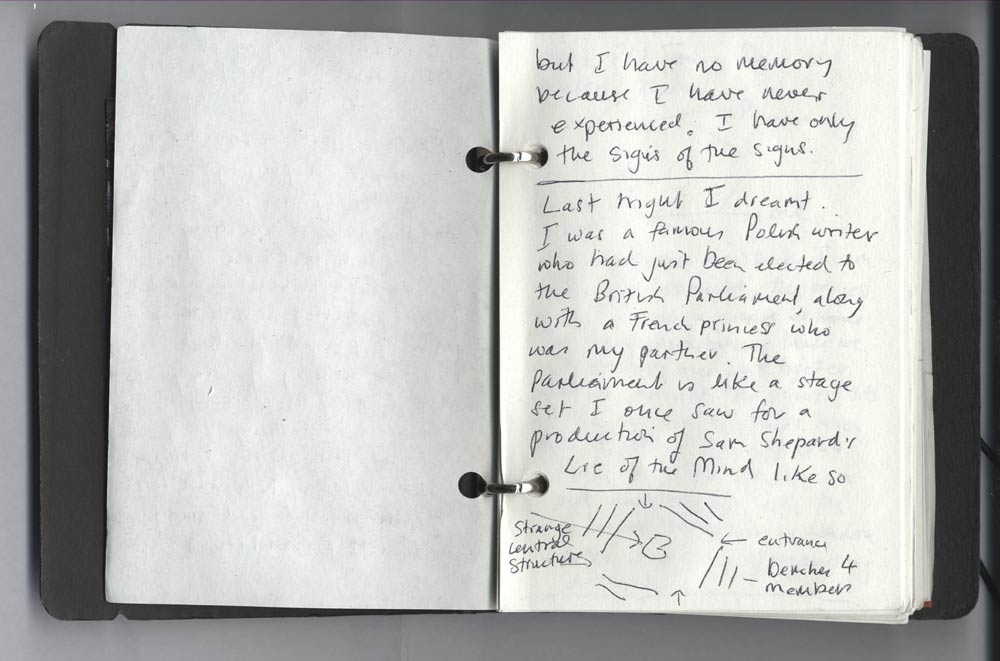 but I have no memory
because I have never
experienced. I have only
the signs of the signs.
Last night I dreamt.
I was a famous Polish writer
who had just been elected to
the British Parliament, along
with a French princess who
was my partner. The
Parliament is like a stage
set I once saw for a
production of Sam Shepard's
Lie of the Mind like so
Strange
central
structure
entrance
benches 4
members